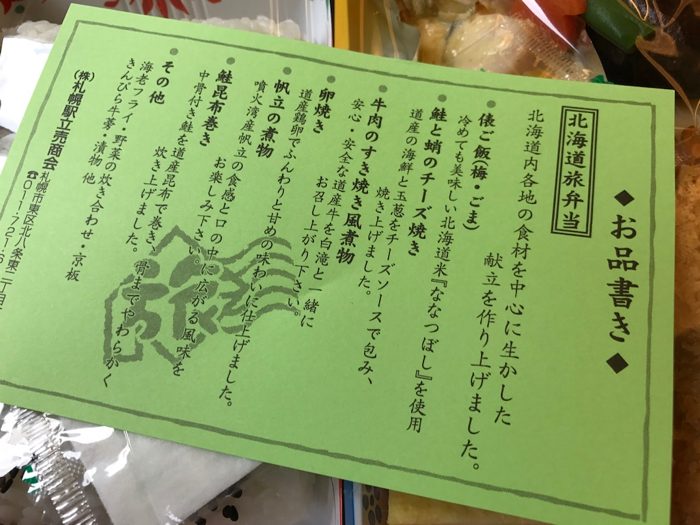 ◆お品書き◆
北海道旅弁当
北海道内各地の食材を中心に生かした
献立を作り上げました。
俵ご飯(梅・ごま)
冷めても美味しい北海道米『ななつぼし』を使用
鮭と蛸のチーズ焼き
道産の海鮮と玉葱をチーズソースで包み、
焼き上げました。
牛肉のすき焼き風煮物
安心・安全な道産牛を白滝と一緒に
お召し上がり下さい。
卵焼き
道産鶏卵でふんわりと甘めの味わいに仕上げました。
帆立の煮物
噴火湾産帆立の食感と口の中に広がる風味を
お楽しみ下さい。
鮭昆布巻き
中骨付き鮭を道産昆布で巻き、骨までやわらかく
炊き上げました。
その他
海老フライ・野菜の炊き合わせ・京板
きんぴら牛蒡・漬物 他
(株)札幌駅立売商会 札幌市東区北八条東二丁目
☎011-721-6
旅